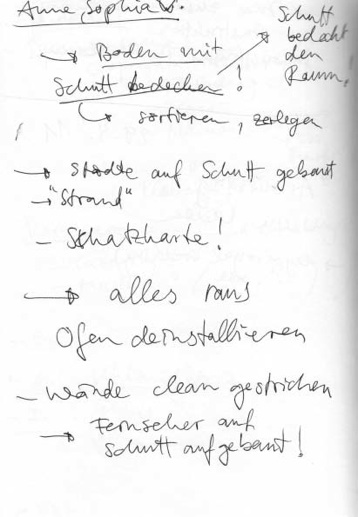 Anne Sophia V.
→ Boden mit
Schutt bedecken!
Schutt
bedeckt
den
Raum!
↳ sortieren, zerlegen
→ Städte auf Schutt gebaut
→ "Strand"
- Schatzkarte!
→ alles raus
Ofen deinstallieren
- Wände clean gestrichen
→ Fernseher auf
Schutt aufgebaut!